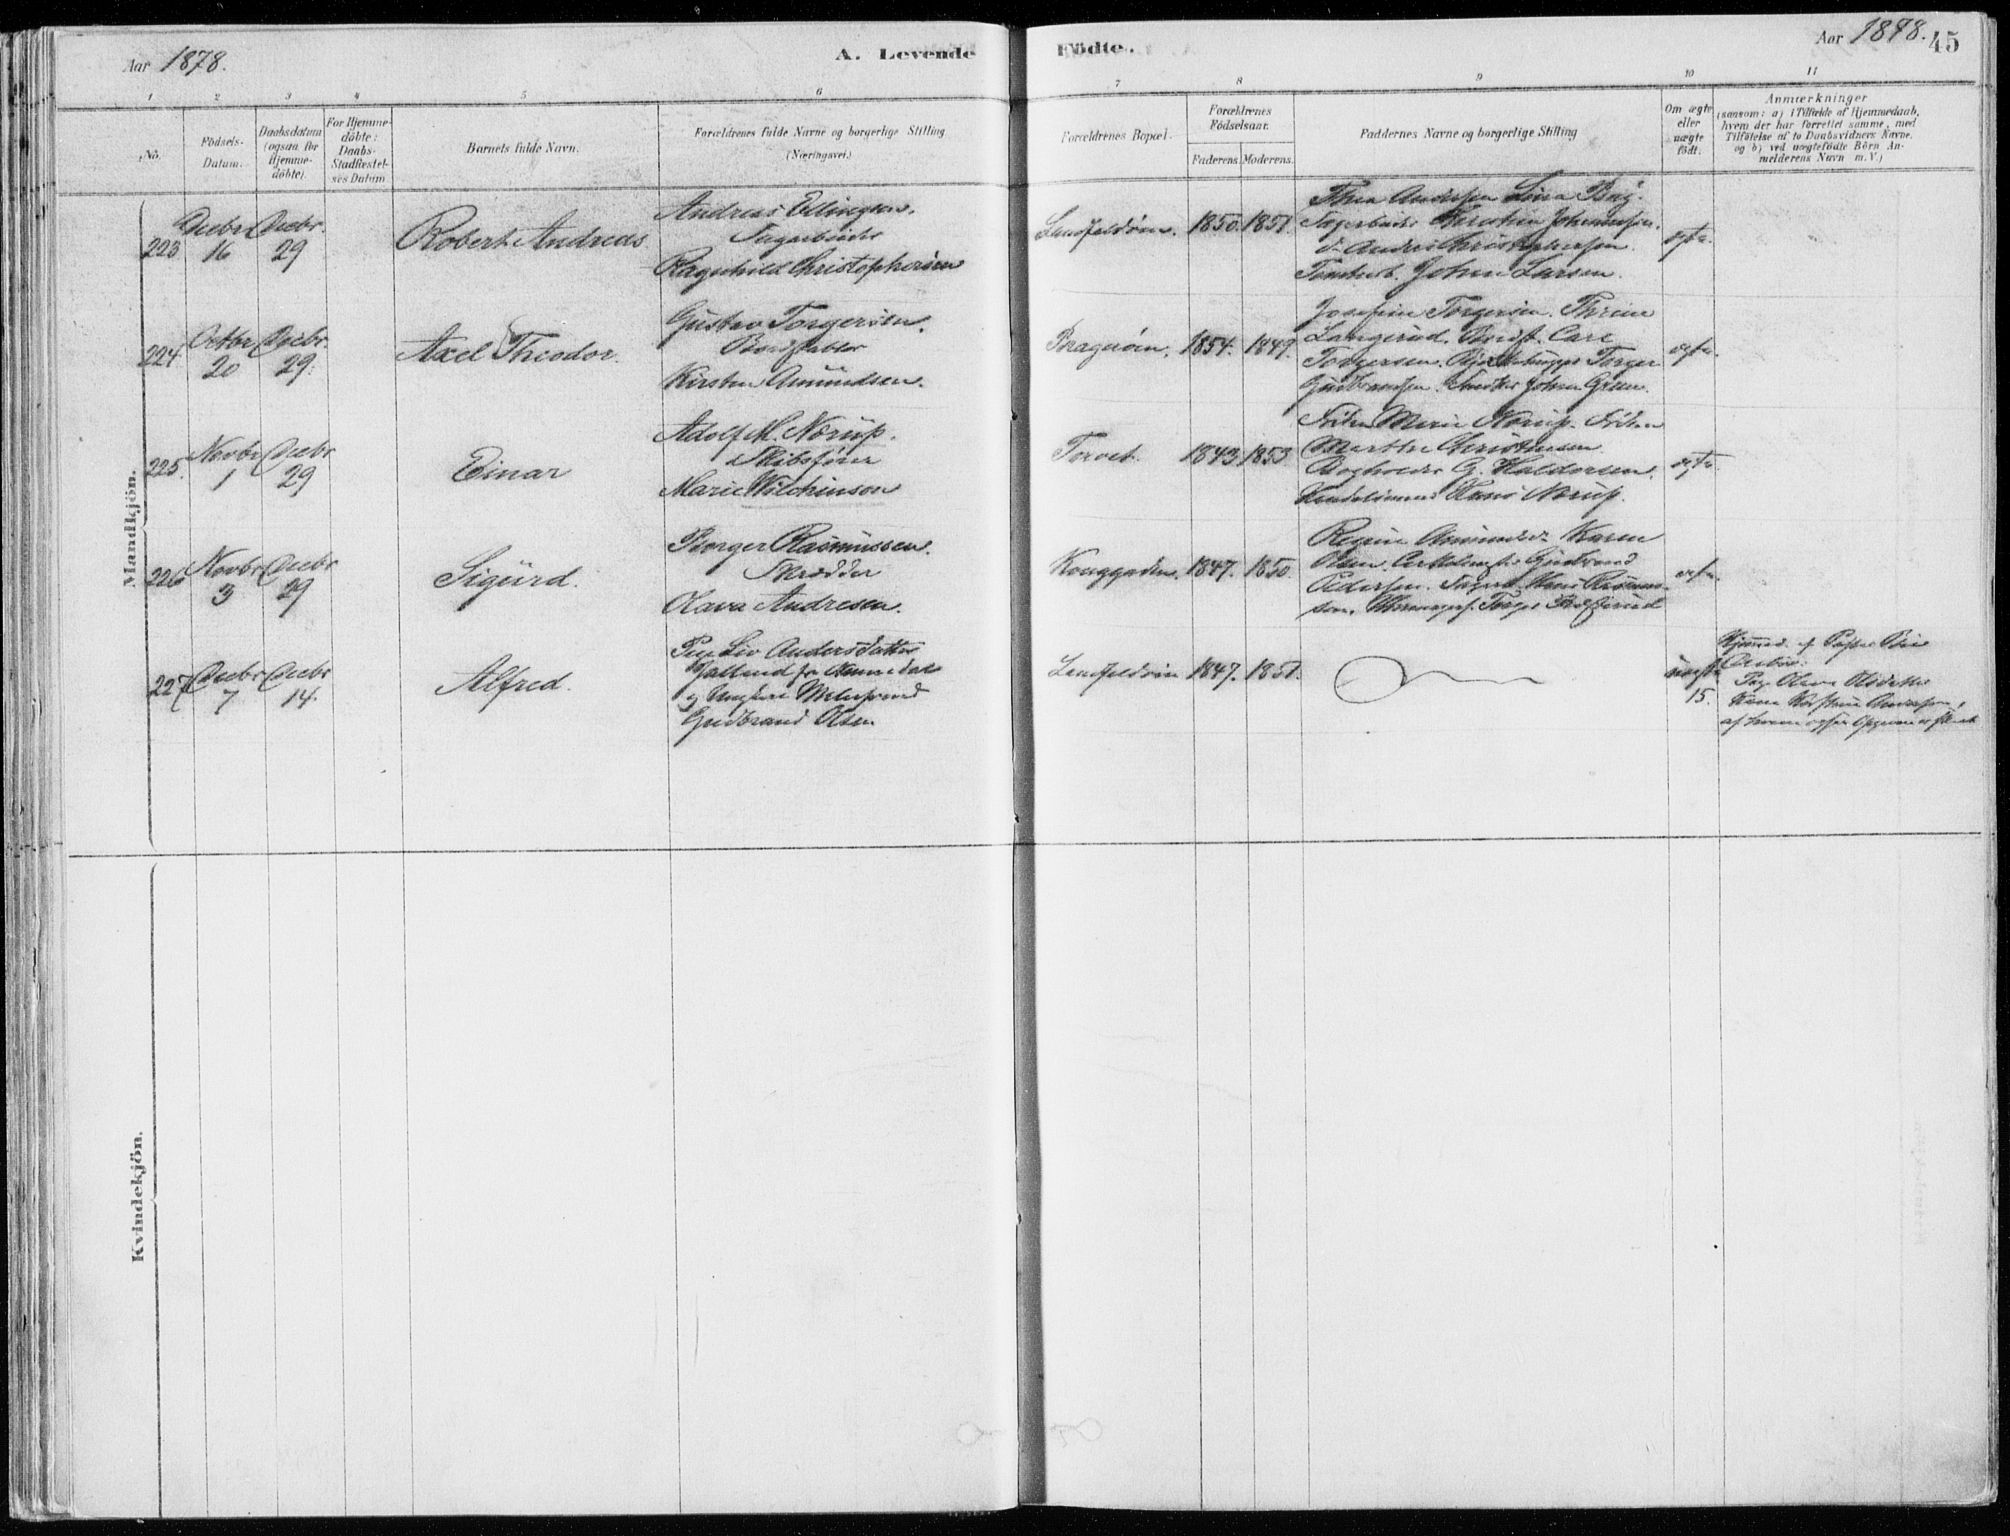 Aar 1878.
A. Levende
Födte.
Aar 1878.
45
1 2 3 4 5 6 7 8 9 10 11
No.
Födsels-
Datum.
Daabsdatum
(ogsaa for
Hjemme-
döbte).
For Hjemme-
döbte:
Daabs-
Stadfæstel-
ses Datum
Barnets fulde Navn.
Forældrenes fulde Navne og borgerlige Stilling
(Næringsvei.)
Forældrenes Bopæl.
Forældrenes
Födselsaar.
Faderens Moderens.
Faddernes Navne og borgerlige Stilling
Om ægte
eller
uægte
födt.
Anmærkninger
(saasom: a) i Tilfælde af Hjemmedaab,
hvem der har forrettet samme, med
Tilföielse af to Daabsvidners Navne.
og b) ved uægtefödte Börn An-
melderens Navn m. V.)
Mandkjön.
223
Decbr
16
Decbr.
29
Robert Andreas
Andreas Ellingsen.
Sagarbeider
Ragnhild Christophersen
Landfaldöen.
1850. 1851.
Thea Andersen
Sagarbeider Johannessen.
Anders Christophersen
John Larsen.
ægte.
224
Octbr
20
Decbr.
29.
Axel Theodor.
Gustav Torgersen.
Kirsten Amundsen.
Bragerøen.
1854. 1849.
Josefine Torgersen. Thrine
Langerud. Carl
Torgersen. Torger
Gudbrandsen. John
ægte.
225.
Novbr
1
Decbr
29
Einar
Adolf M. Nørup.
Skibsfører
Marie Wilchinson
Torvet.
1843 1853
Frøken Marie Nørup. Frøken
Marthe Christensen
Bogholder G. Haldorsen.
Hans Nørup.
ægte.
226
Novbr
3
Decbr
29
Sigurd.
Borger Rasmussen.
Skrædder
Olava Andresen.
Konggaden.
1847. 1850.
Regine Karen
Olsen. Gudbrand
Pedersen. Hans Rasmus-
sen. Torger
ægte.
227
Decbr
7
Decbr
14.
Alfred.
Pige Liv Andersdatter
fra Nummedal
og Ungkarl
Gudbrand Olsen
Landfaldöen
1847. 1851.
uægte
15.
Hjemmed. af
Pige Olava Olsdatter
Andersen,
af hvem ogsaa
Kvindekjön.